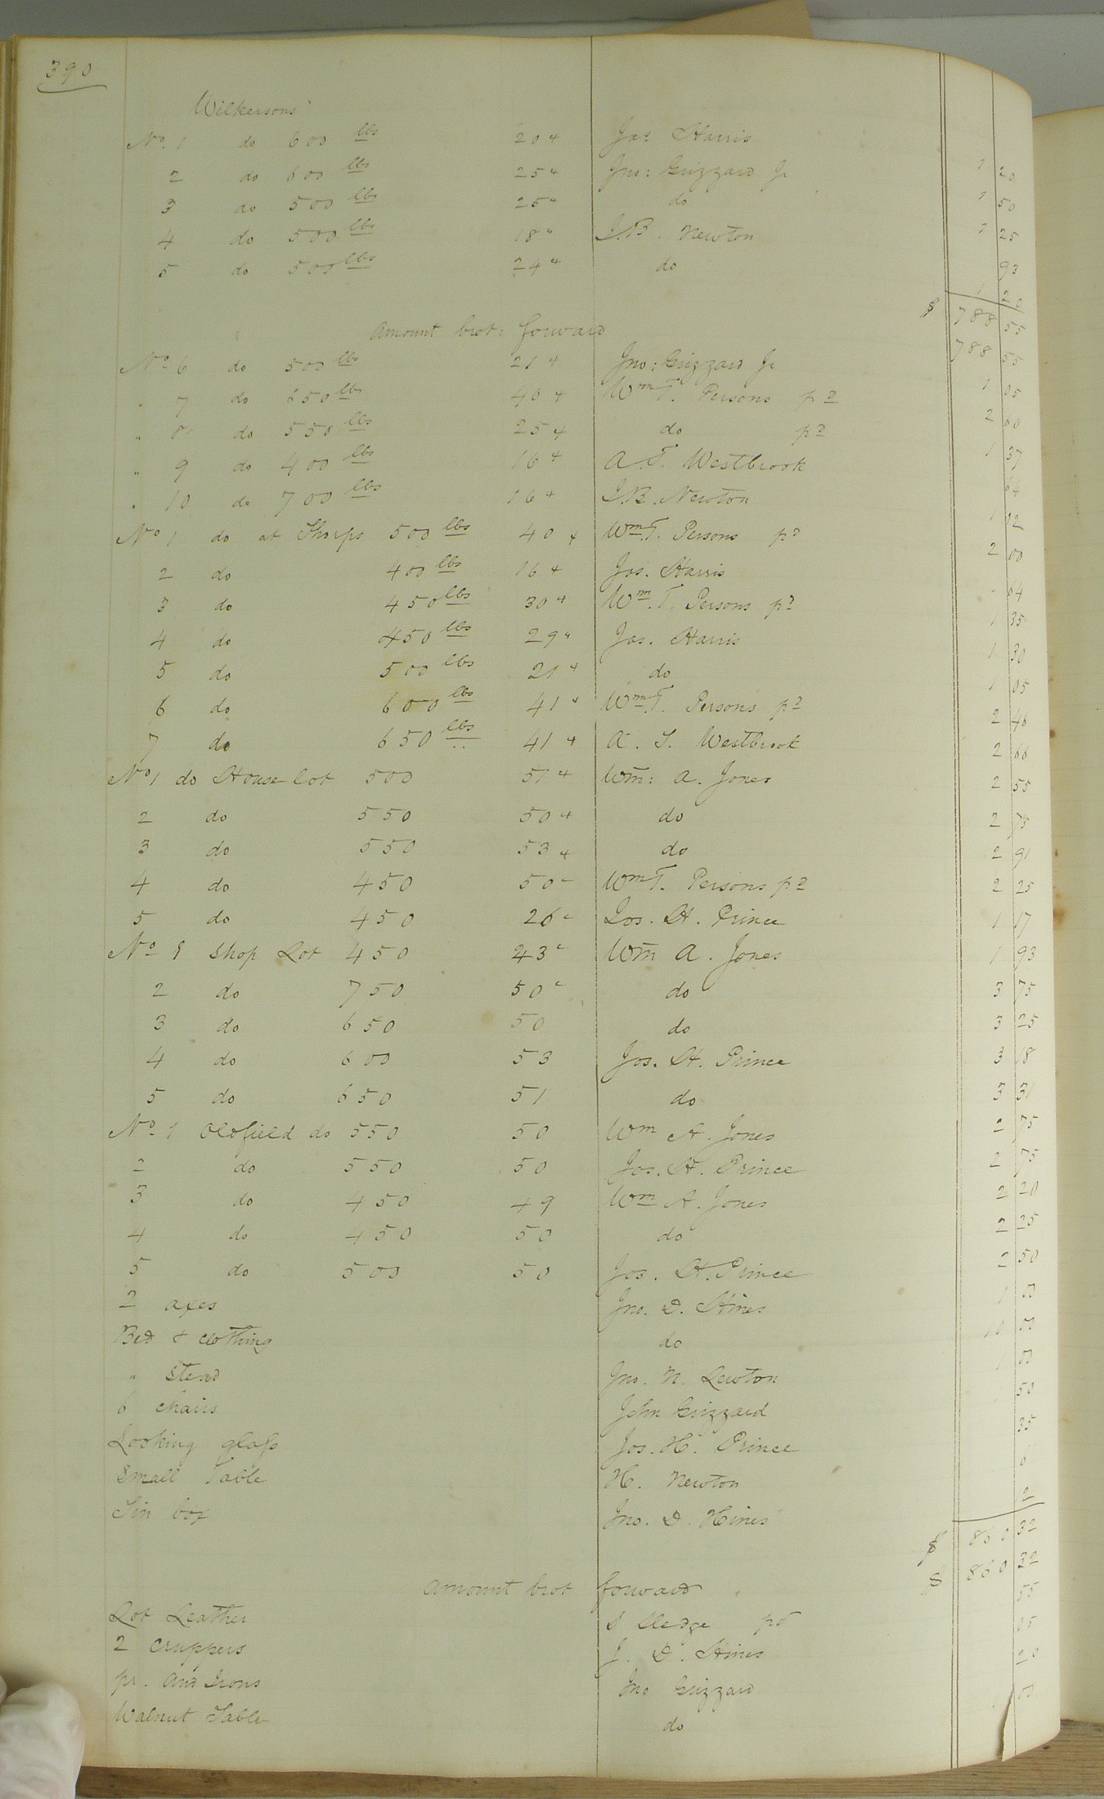 390
Wilkersons
No. 1 do 600 lbs 20 " Jas Harris 1 20
2 do 600 lbs 25 " Jno: Grizzard Jr 1 50
3 do 500 lbs 25 " do 1 25
4 do 500 lbs 18 " J.B. Newton 93
5 do 500 lbs 24 " do 1 20
$ 788 55
Amount brot: forward 788 55
No 6 do 500 lbs 21 " Jno: Grizzard Jr 1 05
" 7 do 650 lbs 40 " Wm T. Persons pd 2 60
" 8 do 550 lbs 25 " do pd 1 37
" 9 do 400 lbs 16 " A.T. Westbrook 64
" 10 do 700 lbs 16 " J.B. Newton 1 12
No 1 do at Thorps 500 lbs 40 " Wm T. Persons pd 2 00
2 do 400 lbs 16 " Jas. Harris 64
3 do 450 lbs 30 " Wm. T. Persons pd 1 35
4 do 450 lbs 29 " Jas. Harris 1 30
5 do 500 lbs 21 " do 1 05
6 do 600 lbs 41 " Wm T. Persons pd 2 46
7 do 650 lbs 41 " A. T. Westbrook 2 66
No 1 do House lot 500 51 " Wm: A. Jones 2 55
2 do 550 50 " do 2 75
3 do 550 53 " do 2 91
4 do 450 50 " Wm T. Persons pd 2 25
5 do 450 26 " Jos. H. Prince 1 17
No 1 Shop Lot 450 43 " Wm A. Jones 1 93
2 do 750 50 " do 3 75
3 do 650 50 do 3 25
4 do 600 53 Jos. H. Prince 3 18
5 do 650 51 do 3 31
No 1 Oldfield do 550 50 Wm A. Jones 2 75
2 do 550 50 Jos. H. Prince 2 75
3 do 450 49 Wm A. Jones 2 20
4 do 450 50 do 2 25
5 do 500 50 Jos. H. Prince 2 50
2 axes Jno. D. Hines 1 00
Bed & clothing do 10 00
" stead Jno. N. Lewton 1 00
6 chairs John Grizzard 50
Looking glass Jos. H. Prince 35
Small Table H. Newton
Tin box Jno. D. Hines 2
$ 860 32
Amount brot forward $ 860 32
Lot Leather S Cledge pd 55
2 Cruppers J. D. Hines 05
pr. And Irons Jno Grizzard 20
Walnut Table do 00